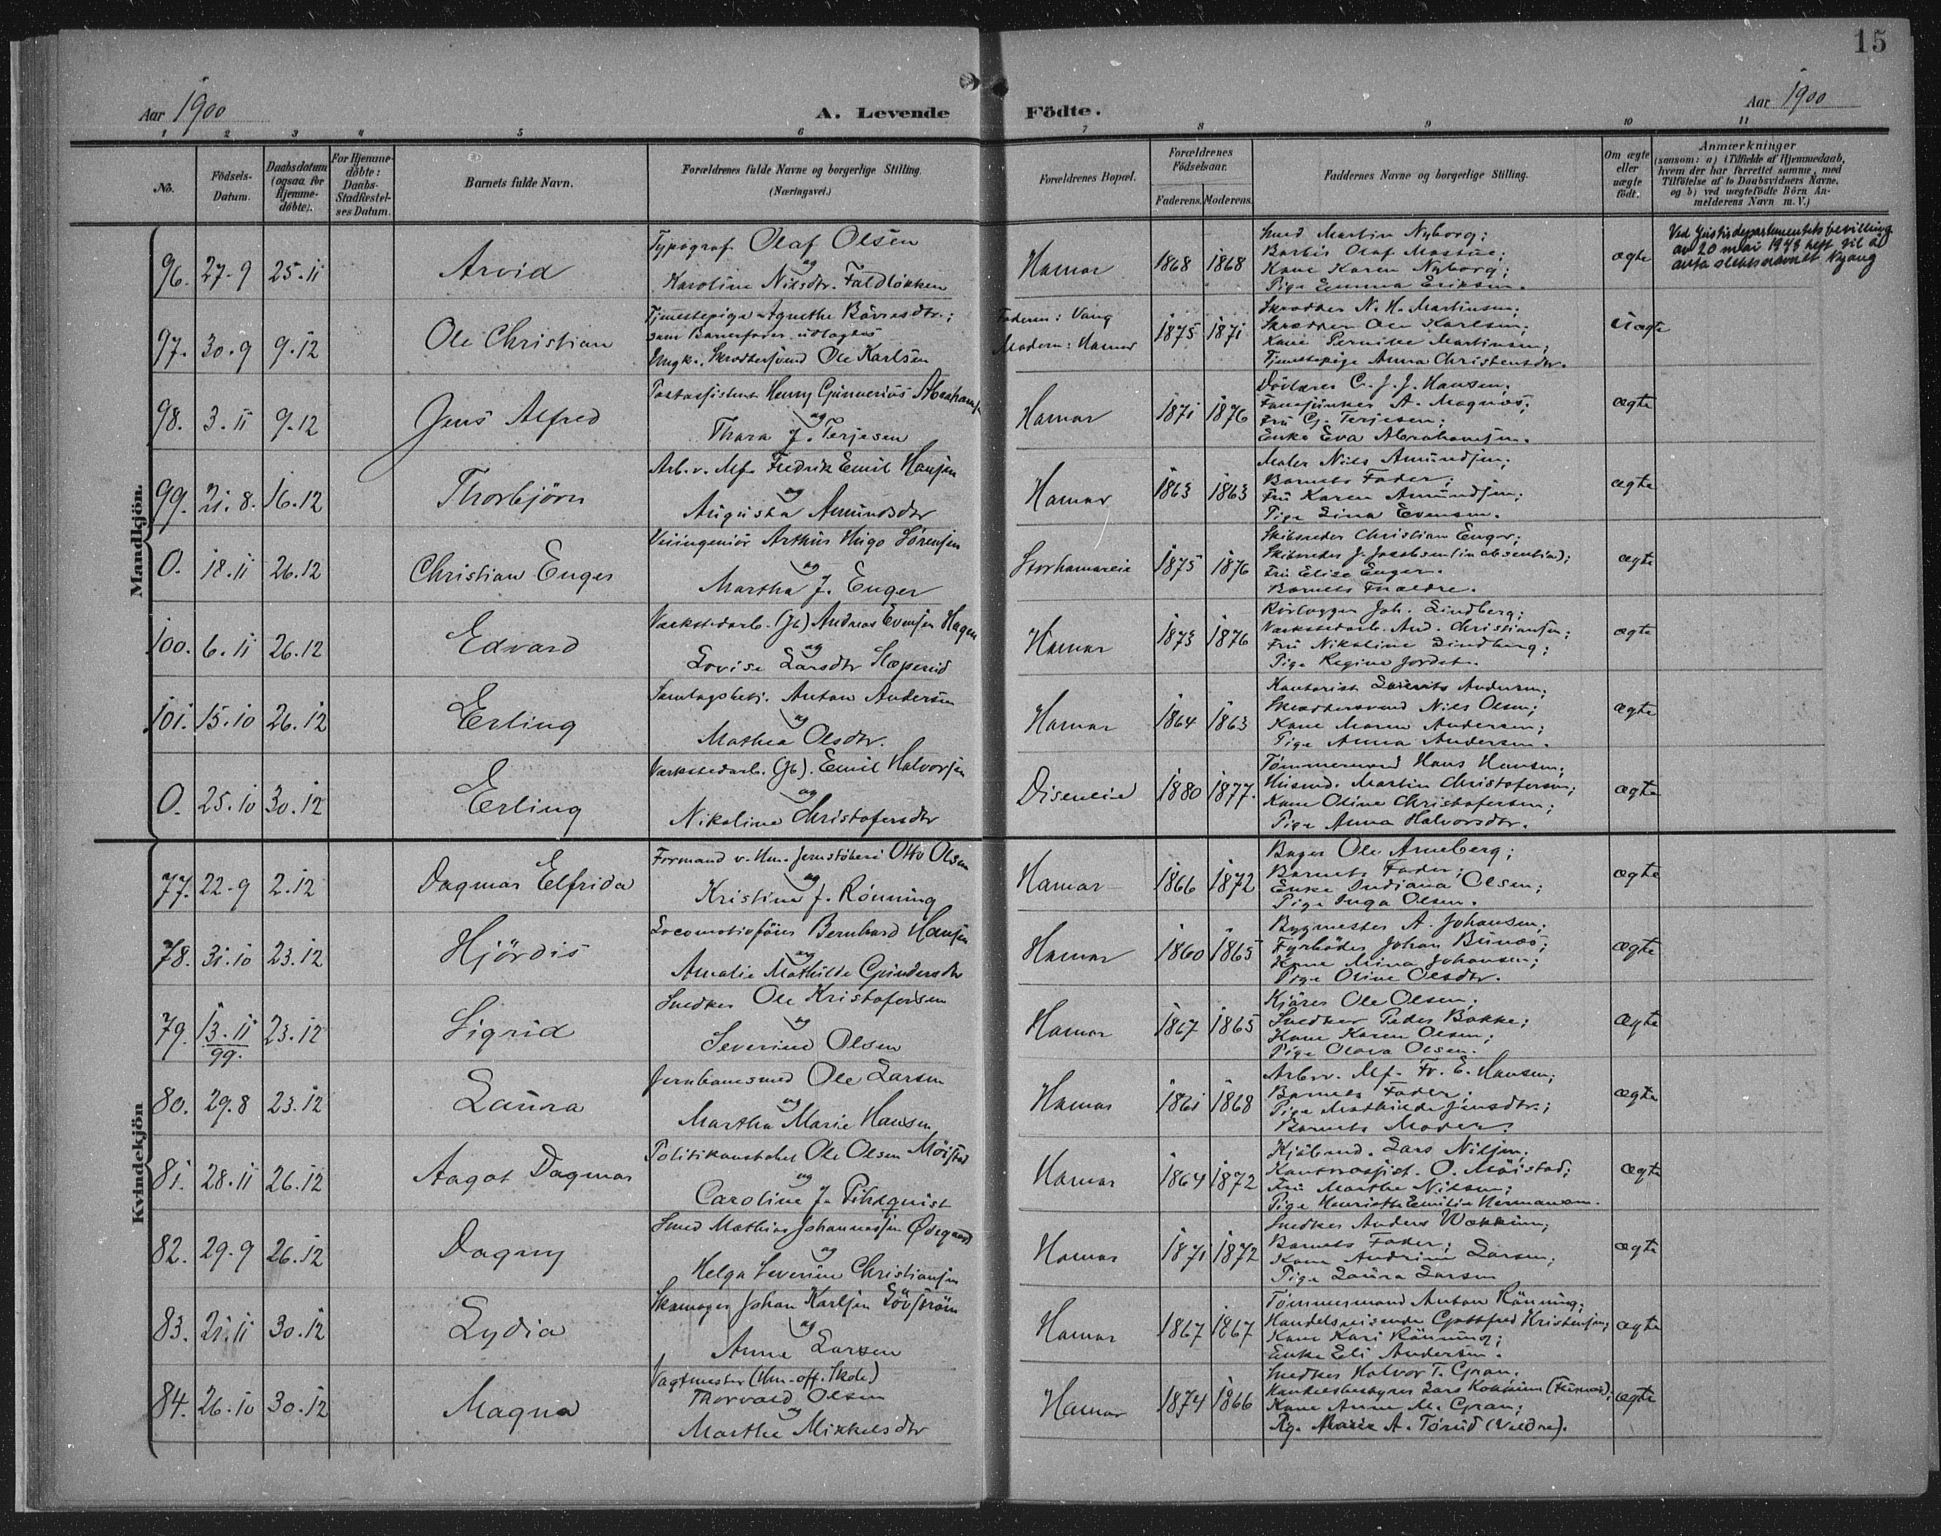 15
Aar 1900
A. Levende
Födte.
Aar 1900
1 2 3 4 5 6 7 8 9 10 11
No.
Födsels-Datum.
Daabsdatum (ogsaa for Hjemme-döbte).
For Hjemme-döbte: Daabs-Stadfæstel-ses Datum.
Barnets fulde Navn.
Forældrenes fulde Navne og borgerlige Stilling.
(Næringsvei.)
Forældrenes Bopæl.
Forældrenes Födselsaar.
Faderens. Moderens.
Faddernes Navne og borgerlige Stilling.
Om ægte eller uægte födt.
Anmærkninger
(saasom: a) i Tilfælde af Hjemmedaab,
hvem der har forrettet samme, med
Tilföielse af to Daabsvidners Navne,
og b) ved uægtefödte Börn An-
melderens Navn m. V.)
Mandkjön.
96. 27-9 25.11 Arvid
Typograf Olaf Olsen
og
Karoline Nilsdtr. Faldløkken
Hamar 1868 1868
Smed Martin Nyborg;
Barbér Olaf Mostue;
Kone Karen Nyborg;
Pige Emma Eriksen.
ægte
Ved Justisdepartementets bevilling
av 20 mai 1943 rett til å
anta slektsnavnet Nyang
97. 30.9 9.12 Ole Christian
Tjenestepige Agnethe Børresdtr.;
som Barnefader udlagdes
Ungk. Skræddersvend Ole Karlsen
Faderen: Vang
Moderen: Hamar
1875 1871
Skrædder N. H. Martinsen;
Skrædder Ole Karlsen;
Kone Pernike Martinsen;
Tjenestepige Anna Christensdtr.
Uægte
98. 3.11 9.12 Jens Alfred
Postassistent Henry Gunnerius Abrahamsen
og
Thara J. Terjesen
Hamar 1871 1876
C. J. J. Hansen;
A. Magnus;
Fru G. Terjesen;
Enke Eva Abrahamsen.
ægte
99. 21.8. 16.12 Thorbjörn
Arb. v. Mf. Fredrik Emil Hansen
og
Augusta Amundsdtr
Hamar 1863 1863
Maler Nils Amundsen;
Barnets Fader;
Fru Karen Amundsen;
Pige Lina Evensen.
ægte
0. 18.11 26.12 Christian Enger
Veiingeniør Arthur Hugo Sørensen
og
Martha J. Enger
Storhamareie 1875 1876
Skibsreder Christian Enger;
Skibsreder J. Jacobsen (in absentia);
Fru Elise Enger.
Barnets Forældre.
ægte
100. 6.11 26.12 Edvard
Værkstedarb. (Jb) Andreas Evensen Hagen
og
Lovise Larsdtr Stepsrud
Hamar 1873 1876
Rørlægger Joh. Lindberg;
Værkstedarb. And. Christiansen;
Fru Nikoline Lindberg;
Pige Regine Jordet.
ægte
101. 15.10 26.12 Erling
Samlagsbetj. Anton Andersen
og
Mathea Olsdtr.
Hamar 1864 1863
Kontorist Laurits Andersen;
Skræddersvend Nils Olsen;
Kone Maren Andersen;
Pige Anna Andersen.
ægte
0. 25.10 30.12 Erling
Værkstedarb. (Jb). Emil Halvorsen
og
Nikoline Christofersdtr
Diseneie 1880 1877.
Tømmermand Hans Hansen;
Husmd. Martin Christofersen;
Kone Oline Christofersen;
Pige Anna Halvorsdtr.
ægte
Kvindekjön
77. 22-9 2.12 Dagmar Elfrida
Formand v. Hm. Jernstøberi Otto Olsen
og
Kristine J. Rønning
Hamar 1866 1872
Bager Ole Arneberg;
Barnets Fader;
Enke Indiana Olsen;
Pige Inga Olsen.
ægte
78. 31.10 23.12 Hjördis
Locomotivfører Bernhard Hansen
og
Amalie Mathilde Gundersdtr
Hamar 1860 1865
Bygmester A. Johansen;
Fyrbøder Johan Bunæs;
Kone Mina Johansen;
Pige Oline Olsdtr.
ægte
79. 13.11
99. 23.12 Sigrid
Snedker Ole Kristofersen
og
Severine Olsen
Hamar 1867 1865
Kjører Ole Olsen;
Snedker Peder Bakke;
Kone Karen Olsen;
Pige Olava Olsen.
ægte
80. 29.8 23.12 Laura
Jernbanesmed Ole Larsen
og
Martha Marie Hansen
Hamar 1861 1868
Arb. v. Mf. Fr. E. Hansen;
Barnets Fader;
Pige Mathilde Jensdtr.;
Barnets Moder.
ægte
81. 28.11 26.12 Aagot Dagmar
Politikonstabel Ole Olsen Møistad
og
Caroline J. Pihlquist
Hamar 1864 1872
Lars Nilsen;
O. Møistad;
Fru Marthe Nilsen;
Pige Henriette Emilie Hermansen.
ægte
82. 29.9 26.12 Dagny
Smed Mathias Johannessen Ødegaard
og
Helga Severine Christiansen
Hamar 1871 1872
Snedker Anders
Barnets Fader;
Kone Andrine Larsen;
Pige Laura Larsen
ægte
83. 21.11 30.12 Lydia
Skomager Johan Karlsen Løvstrøm
og
Anne Larsen
Hamar 1867 1867
Tømmermand Anton Rønning;
Handelsreisende Gottfred Kristensen;
Kone Kari Rønning;
Enke Eli Andersen.
ægte
84. 26.10 30.12 Magna
Vagtmester (Um-off. Skole)
Thorvald Olsen
og
Marthe Mikkelsdtr
Hamar 1874 1866
Snedker Halvor T. Gran;
Handelsbestyrer Lars (Furnes);
Kone Anne M. Gran;
Pige Marie A. Torud (Veldre).
ægte